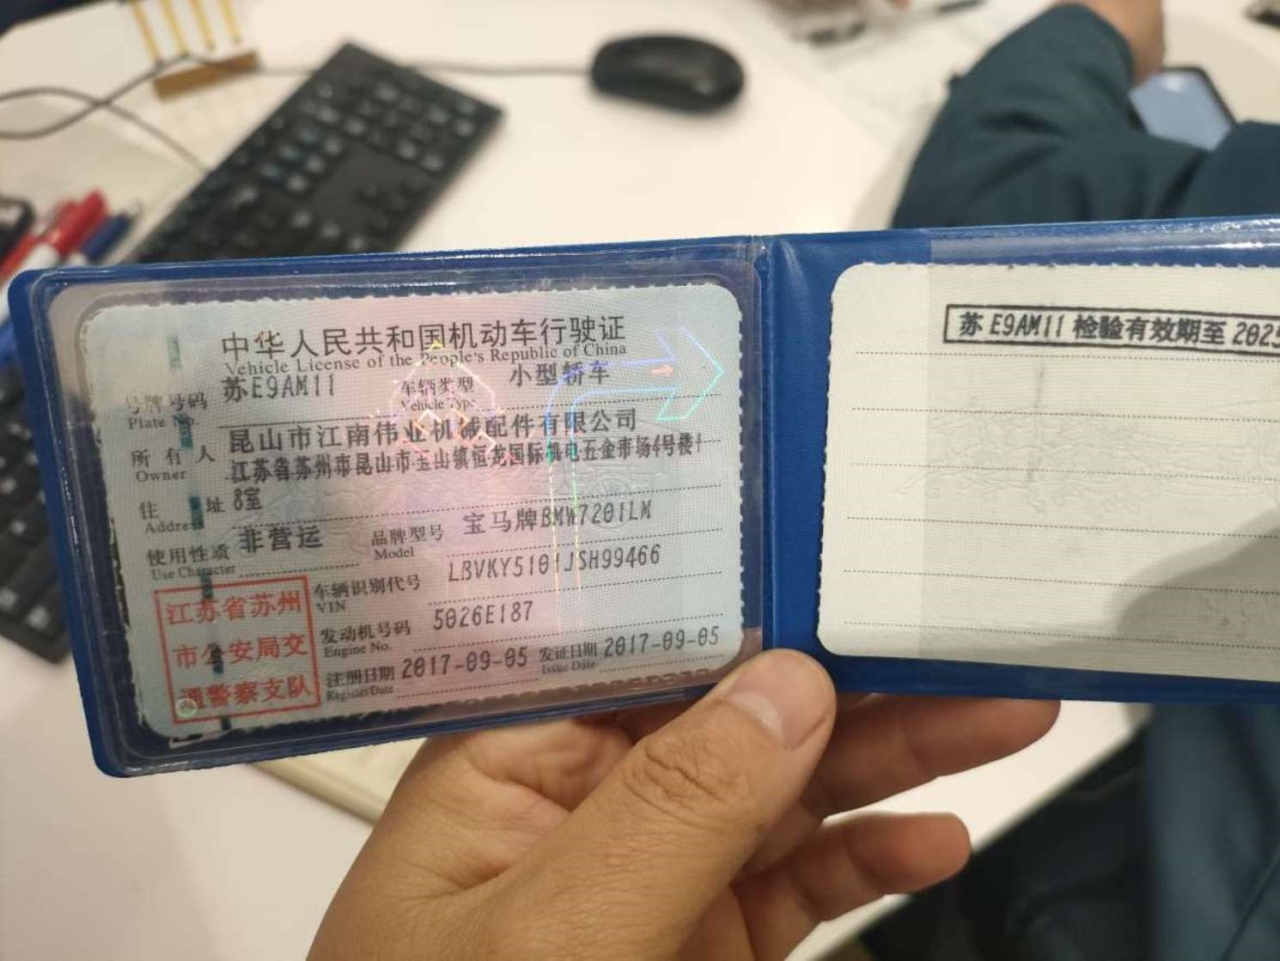 中华人民共和国机动车行驶证
Vehicle License of the People's Republic of China
号牌号码 苏E9AM11 车辆类型 小型轿车
Plate No. Vehicle Type
所有人 昆山市江南伟业机械配件有限公司
Owner
江苏省苏州市昆山市玉山镇恒龙国际机电五金市场4号楼1
住址 8室
Address
使用性质 非营运 品牌型号 宝马牌BMW7201LM
Use Character Model
车辆识别代号 LBVKY5101JSH99466
VIN
发动机号码 5026E187
Engine No.
注册日期 2017-09-05 发证日期 2017-09-05
Register Date Issue Date
江苏省苏州
市公安局交
通警察支队
苏E9AM11检验有效期至 2023